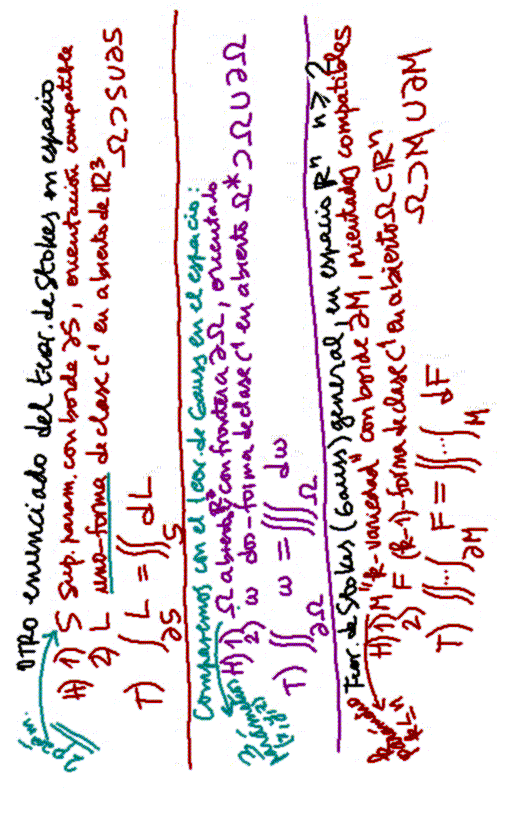 OTRO enunciado del teor. de Stokes en espacio
H) 1) S sup. param. con borde ∂S, orientación compatible
2) L uno-forma de clase C¹ en abierto de ℝ³ Ω ⊃ S ∪ ∂S
T) ∫_∂S L = ∬_S dL
2 parám.
Comparemos con el teor. de Gauss en el espacio:
H) 1) Ω abierto ℝ³, con frontera ∂Ω, orientado
2) ω dos-forma de clase C¹ en abierto Ω* ⊃ Ω ∪ ∂Ω
T) ∬_∂Ω ω = ∭_Ω dω
Teor. de Stokes (Gauss) general, en espacio ℝⁿ n ≥ 2
H) 1) M "k-variedad" con borde ∂M, orientados compatibles
2) F (k-1)-forma de clase C¹ en abierto Ω ⊂ ℝⁿ
Ω ⊃ M ∪ ∂M
T) ∬...∫_∂M F = ∭...∫_M dF